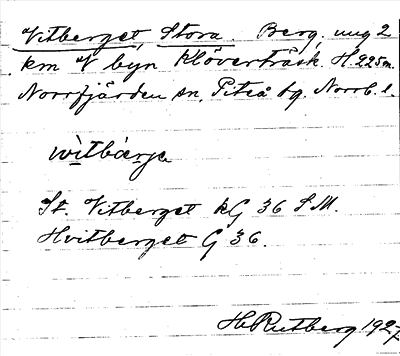 Vitberget, Stora. Berg, ung 2
km V byn Klöverträsk. H. 225 m.
Norrfjärden sn, Piteå tg. Norrb. l.
wìtbærje
St. Vitberget kG 36 S.M.
Hvitberget G 36.
H. Rutberg 1927